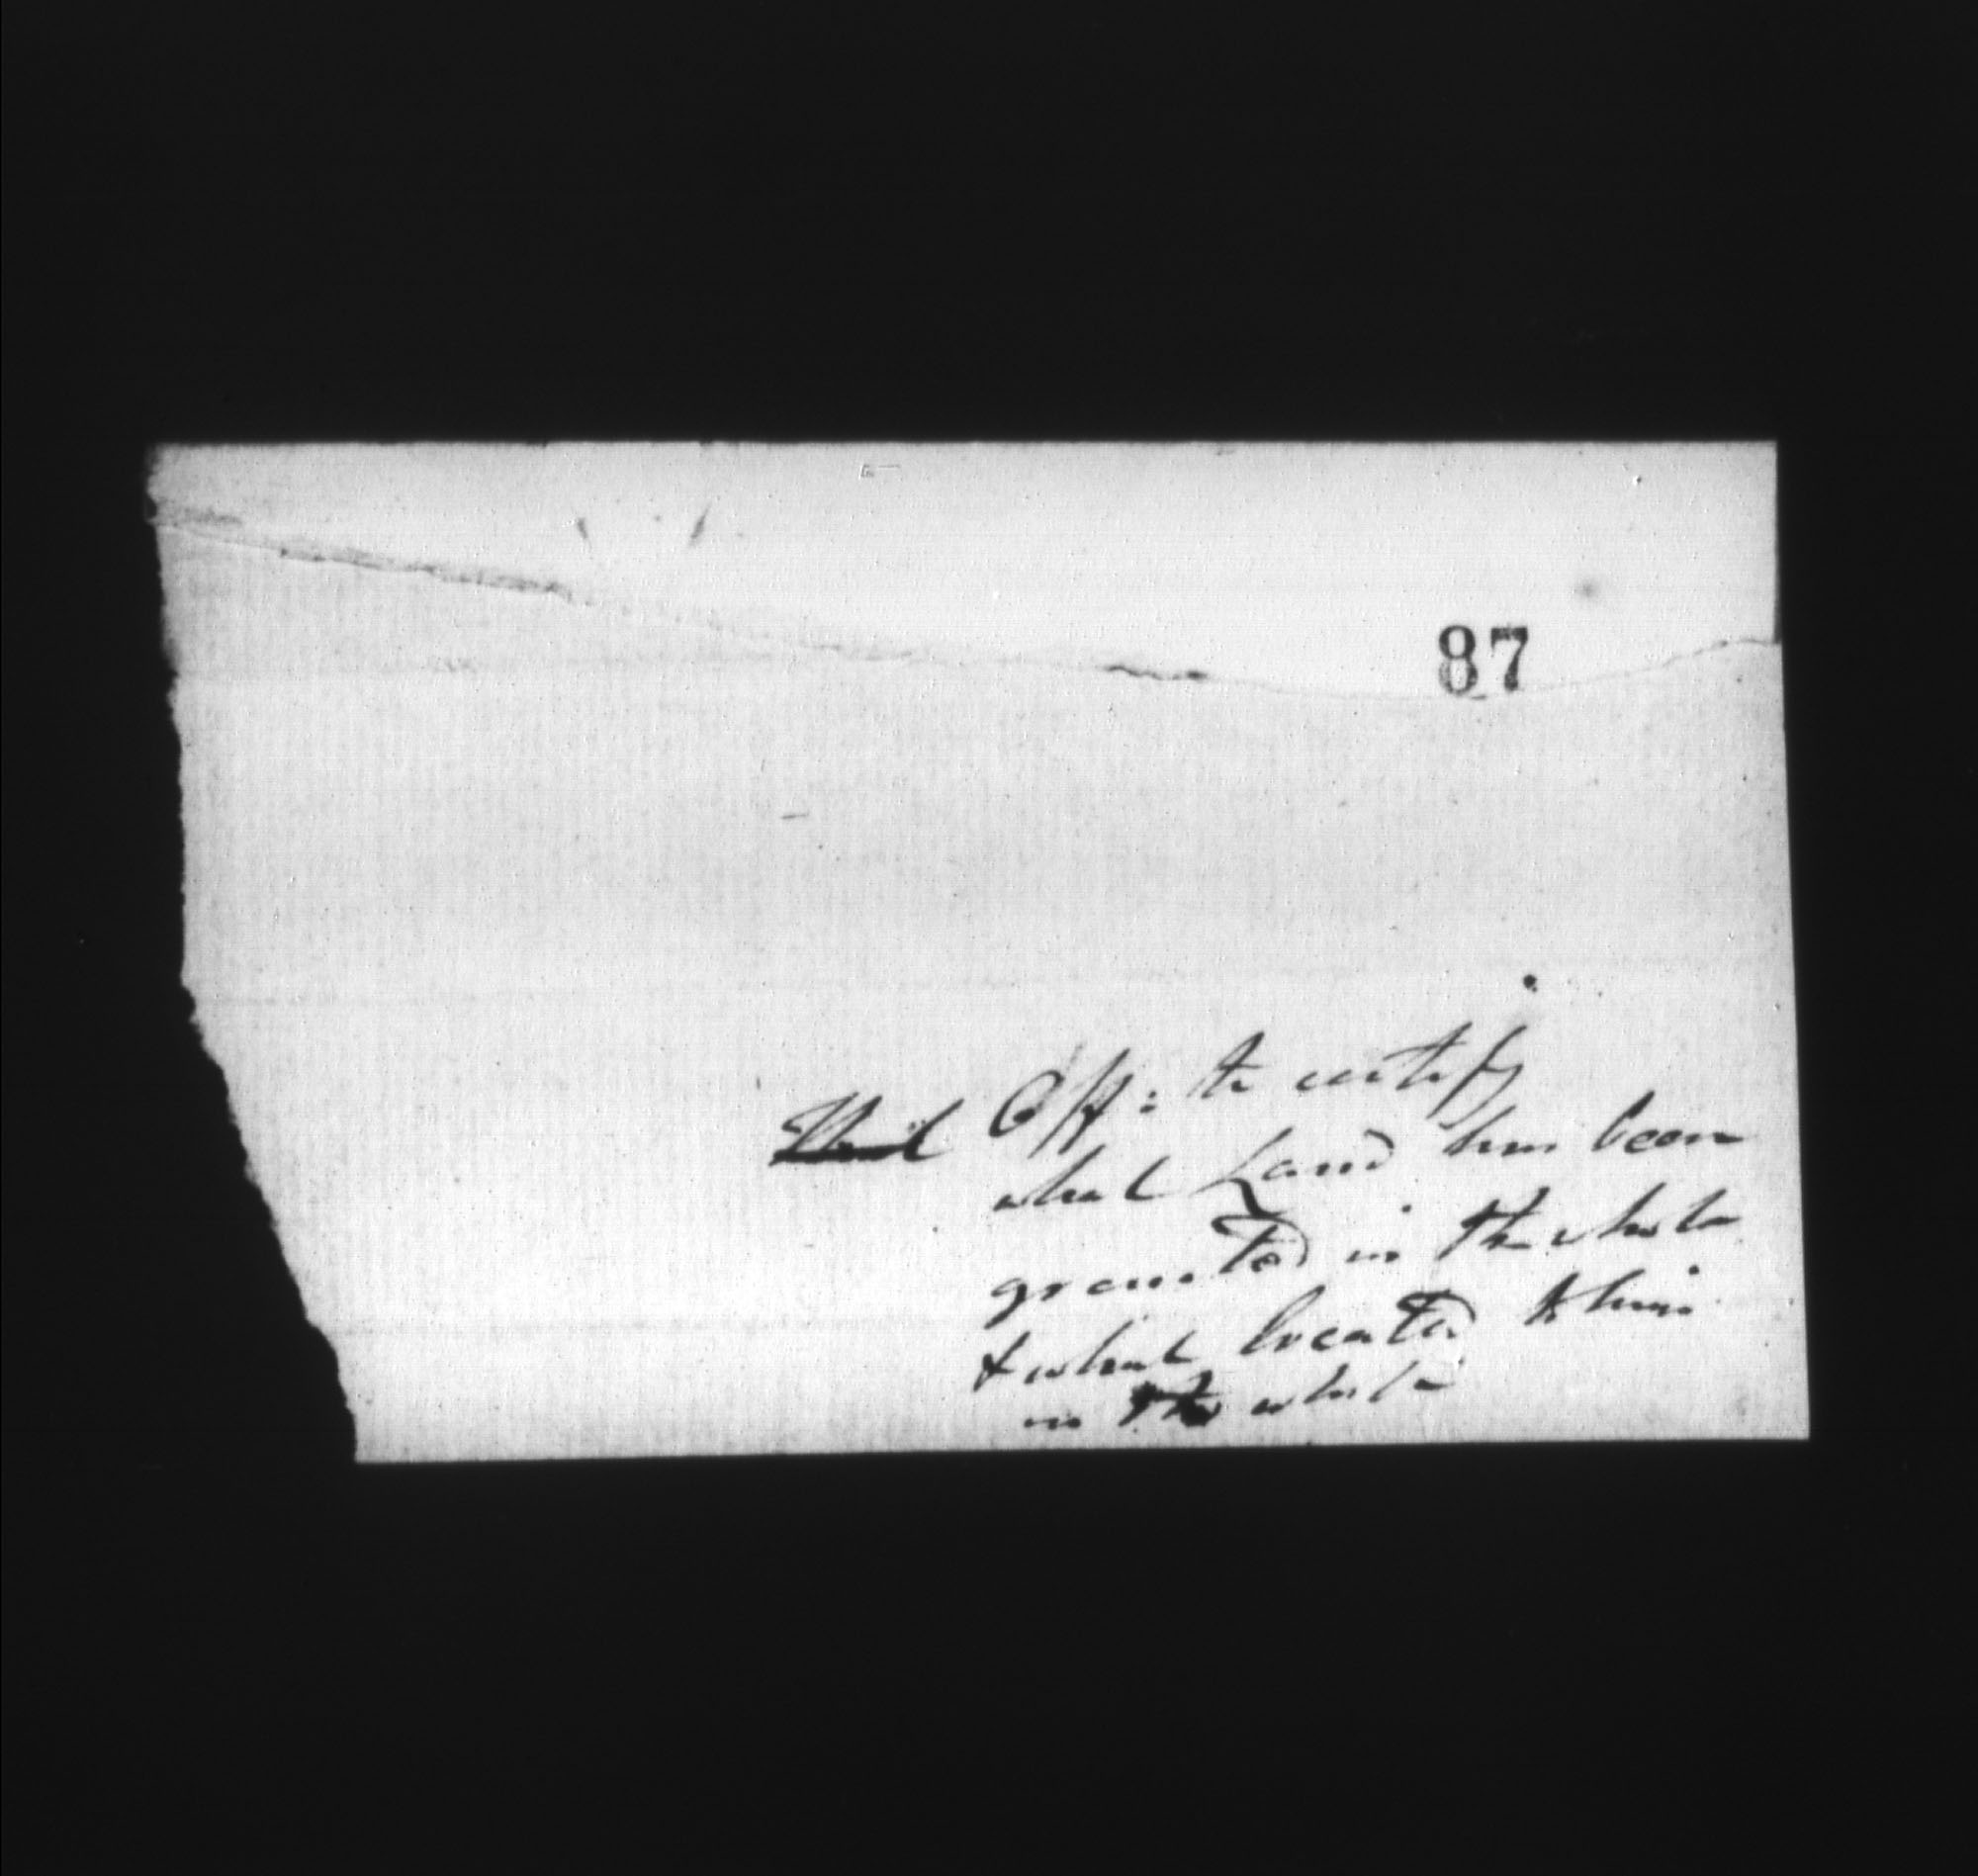 87
Off: to certify
what Land has been
granted in the whole
& what located to him
in the whole